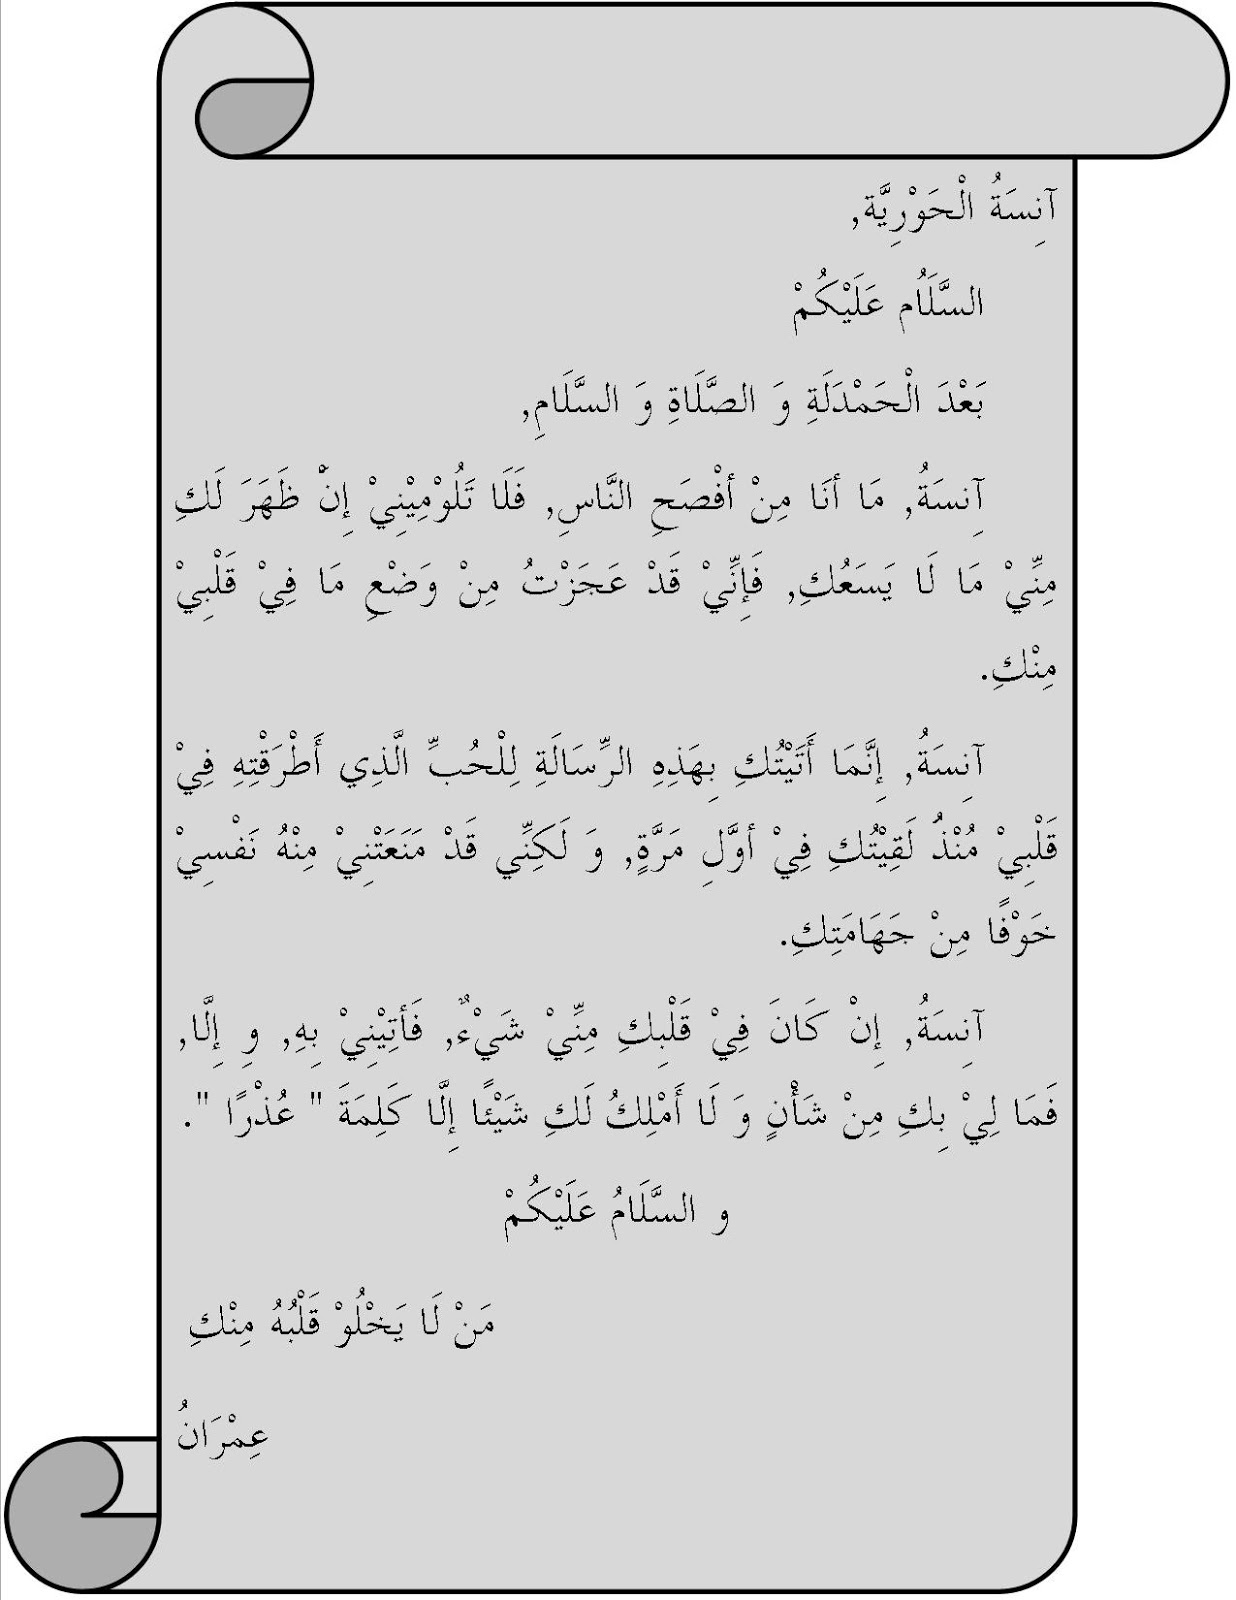 آنِسَةُ الْحَوْرِيَّة,
السَّلَاُم عَلَيْكُمْ
بَعْدَ الْحَمْدَلَةِ وَ الصَّلَاةِ وَ السَّلَامِ,
آنِسَةُ, مَا أنَا مِنْ أفْصَحِ النَّاسِ, فَلَا تَلُوْمِيْنِيْ إِنْ ظَهَرَ لَكِ
مِنِّيْ مَا لَا يَسَعُكِ, فَإِنِّيْ قَدْ عَجَزْتُ مِنْ وَضْعِ مَا فِيْ قَلْبِيْ
مِنْكِ.
آنِسَةُ, إِنَّمَا أَتَيْتُكِ بِهَذِهِ الرِّسَالَةِ لِلْحُبِّ الَّذِي أَطْرَقْتِهِ فِيْ
قَلْبِيْ مُنْذُ لَقِيْتُكِ فِيْ أوَّلِ مَرَّةٍ, وَ لَكِنِّي قَدْ مَنَعَتْنِيْ مِنْهُ نَفْسِيْ
خَوْفًا مِنْ جَهَامَتِكِ.
آنِسَةُ, إِنْ كَانَ فِيْ قَلْبِكِ مِنِّيْ شَيْءٌ, فَأتِيْنِيْ بِهِ, وِ إِلَّا,
فَمَا لِيْ بِكِ مِنْ شَأْنٍ وَ لَا أَمْلِكُ لَكِ شَيْئًا إِلَّا كَلِمَةَ " عُذْرًا ".
و السَّلَامُ عَلَيْكُمْ
مَنْ لَا يَخْلُوْ قَلْبُهُ مِنْكِ
عِمْرَانُ